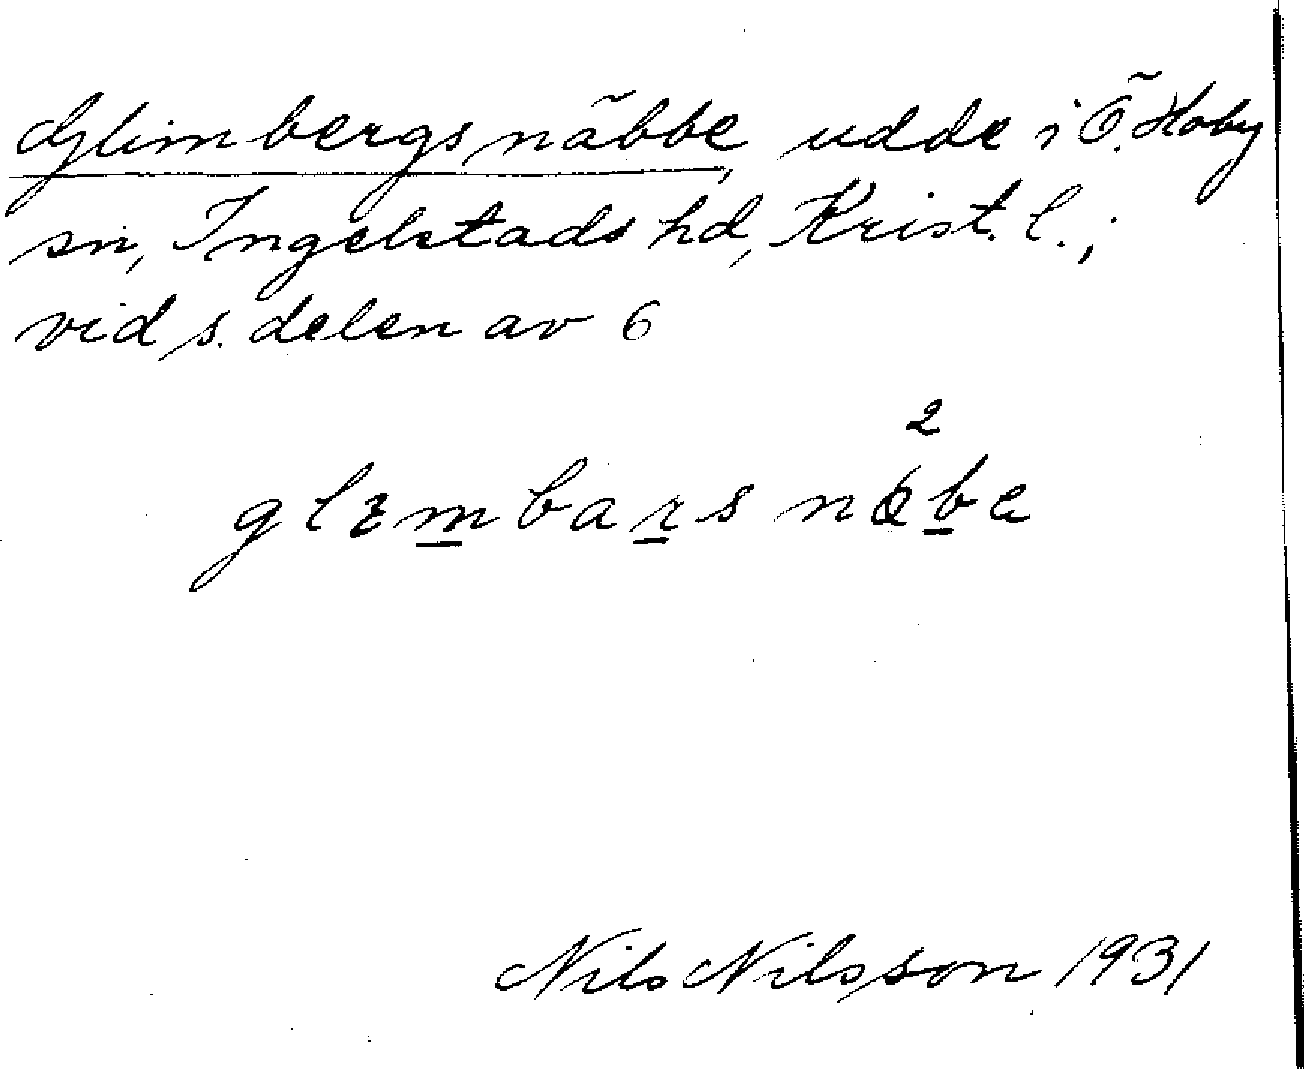 Glimbergsnäbbe, udde i Ö. Hoby
sn, Ingelstads hd, Krist. l.;
vid s. delen av 6
2
Nils Nilsson 1931